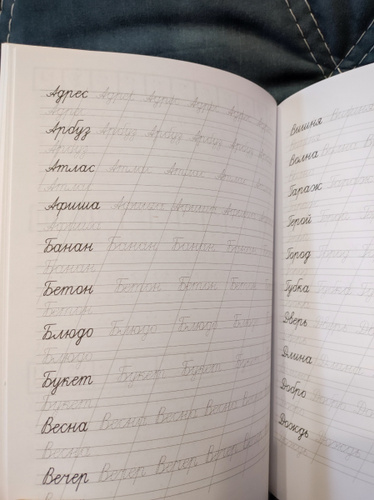 Адрес Адрес Адрес Адрес Адрес
Адрес
Арбуз Арбуз Арбуз Арбуз Арбуз
Арбуз
Атлас Атлас Атлас Атлас
Атлас
Афиша Афиша Афиша Афиша
Афиша
Банан Банан Банан Банан
Банан
Бетон Бетон Бетон Бетон
Бетон
Блюдо Блюдо Блюдо Блюдо
Блюдо
Букет Букет Букет Букет
Букет
Весна Весна Весна Весна Весна
Весна
Вечер Вечер Вечер Вечер Вечер
Вишня
Волна
Гараж
Герой
Город
Губка
Дверь
Длина
Добро
Дождь Дождь